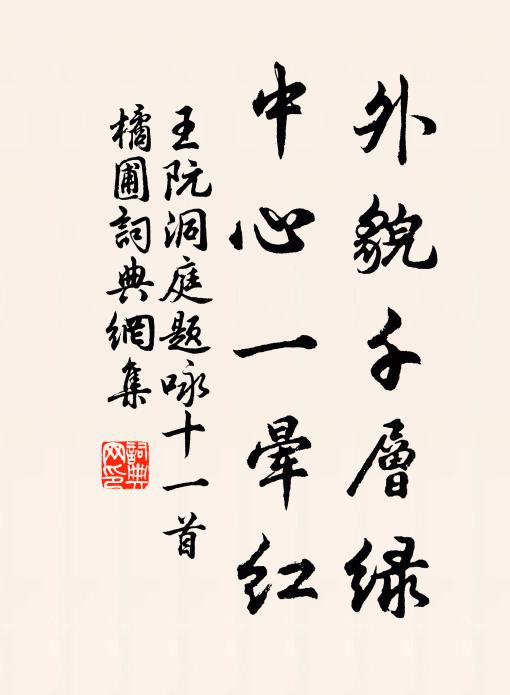 外貌千層綠
中心一暈紅
王阮洞庭題咏十一首
橘圃詞典網集
詞典
网印